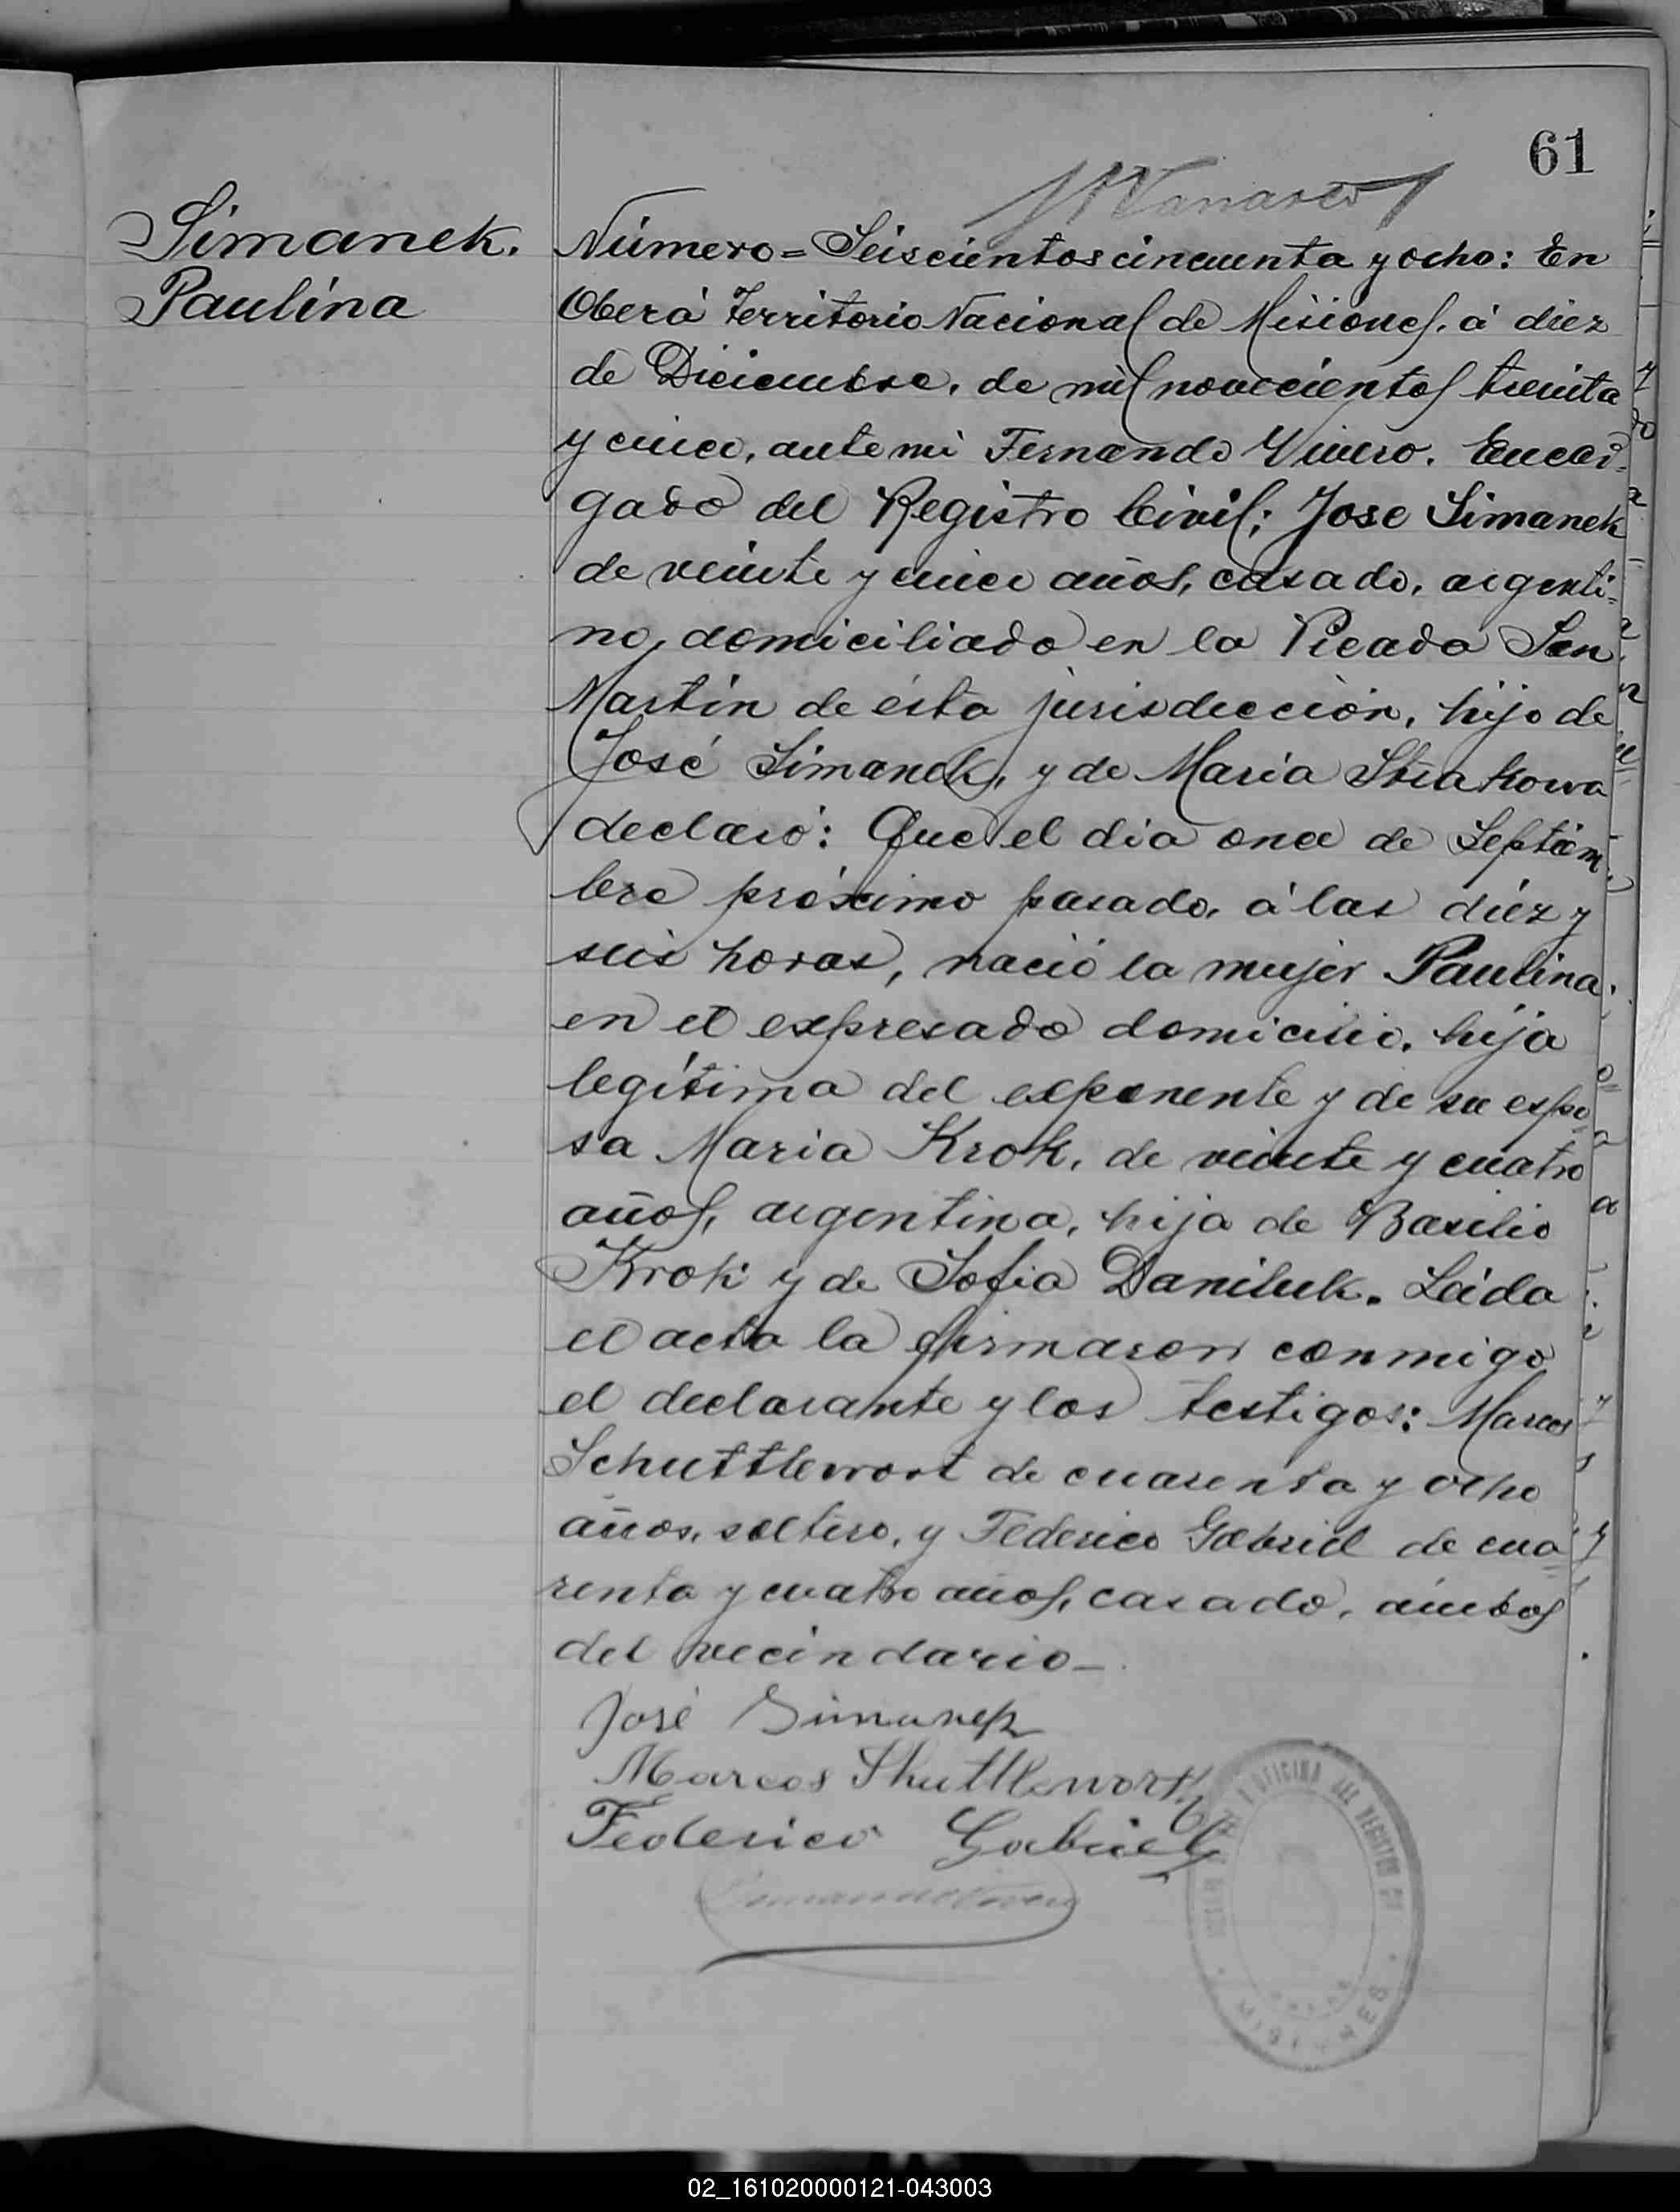 61
Simanek.
Paulina
Número = Seiscientos cincuenta y ocho: En
Oberá Territorio Nacional de Misiones, á diez
de Diciembre, de mil novecientos treinta
y cinco, ante mi Fernando Vivero. Encar-
gado del Registro Civil; Jose Simanek
de veinte y cinco años, casado, argenti-
no, domiciliado en la Picada San
Martin de ésta jurisdicción, hijo de
José Simanek, y de Maria
declaró: Que el dia once de Septiem
bre próximo pasado, á las diéz y
seis horas, nació la mujer Paulina.
en el expresado domicilio, hija
legítima del exponente y de su espo-
sa Maria Krok, de veinte y cuatro
años, argentina, hija de Basilio
Krok y de Sofia Daniluk. Leida
el acta la firmaron conmigo
el declarante y los testigos: Marcos
Schuttlewort de cuarenta y ocho
años, soltero, y Federico Gabriel de cua-
renta y cuatro años, casado, ámbos
del vecindario_
José Simanek
Marcos Shuttleworth
Federico Gabriel
OFICINA DEL REGISTRO
MISIONES
02_161020000121-043003